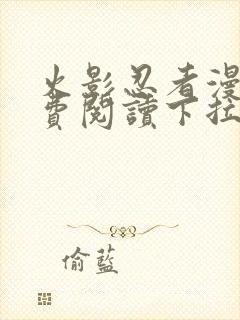 火影忍者漫
費閱讀下拉
偷藍